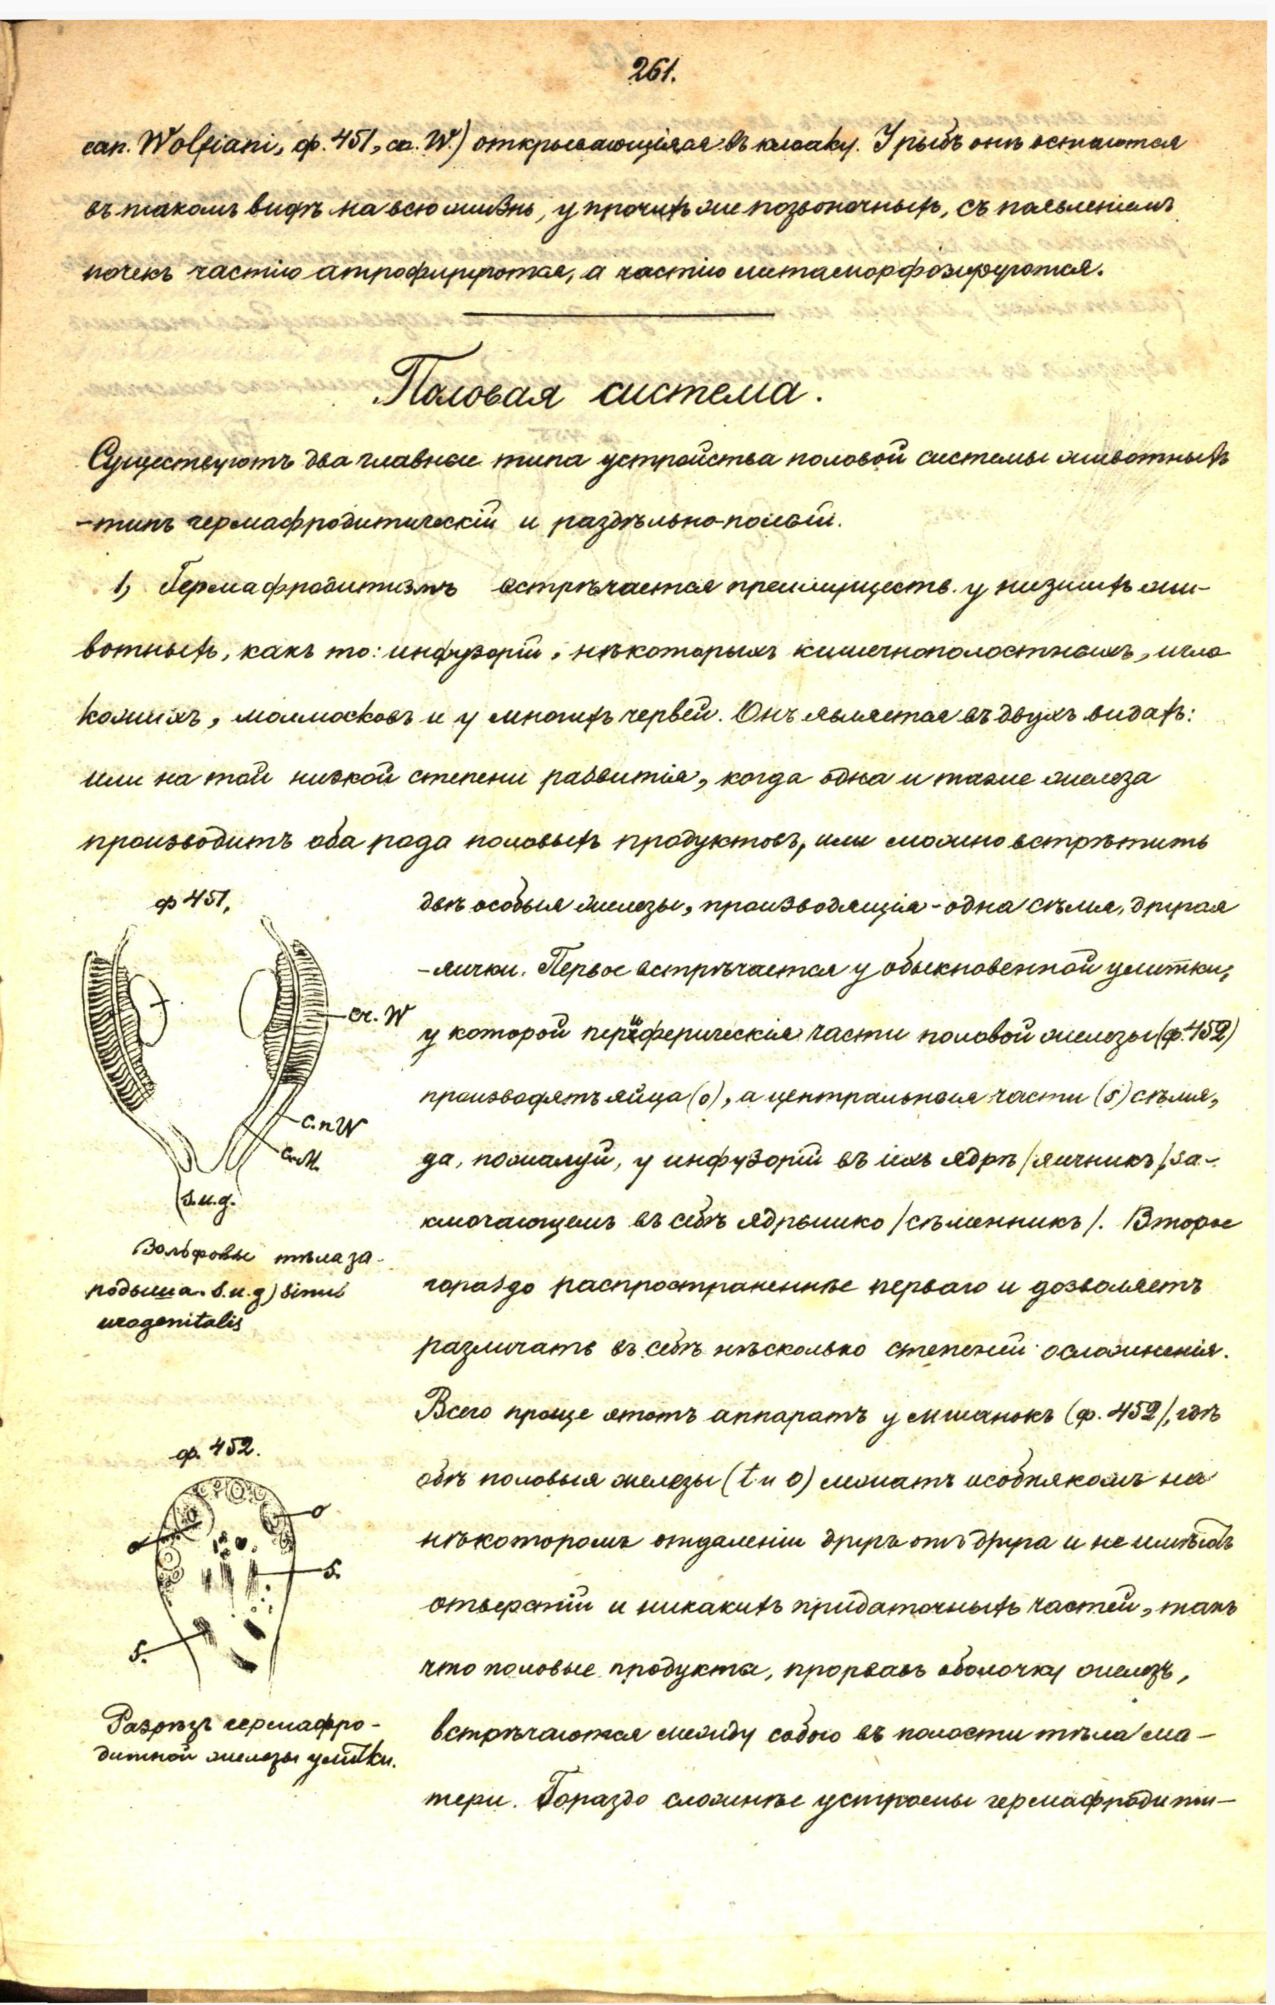 261.
can. Wolfiani, ф. 451, ca. W.) открывающiяся въ клоаку. У рыбъ они остаются
въ такомъ видѣ на всю жизнь, у прочихъ же позвоночныхъ, съ появленiемъ
почекъ частiю атрофируются, а частiю метаморфозируются.
Половая система.
Существуютъ два главные типа устройства половой системы животныхъ
-типъ гермафродитическiй и раздѣльно-полый.
1, Гермафродитизмъ встрѣчается преимуществ. у низшихъ жи-
вотныхъ, какъ то: инфузорiй, нѣкоторыхъ кишечнополостныхъ, игло
кожихъ, моллюсковъ и у многихъ червей. Онъ является въ двухъ видахъ:
или на той низкой степени развитiя, когда одна и таже железа
производитъ оба рода половыхъ продуктовъ, или можно встрѣтить
ф 451,
двѣ особыя железы, производящiя - одна сѣмя, другая
- яички. Первое встрѣчается у обыкновенной улитки,
cr. W
у которой периферическiя части половой железы (ф. 452)
производятъ яйца (о), а центральныя части (s) сѣмя,
c. n W
c. M.
да, пожалуй, у инфузорiй въ ихъ ядрѣ /яичникъ/, за-
s.u.g.
ключающемъ въ себѣ ядрышко /сѣменникъ/. Второе
Вольфовы тѣла за-
родыша. s.u.g) sinus
urogenitalis
гораздо распространеннѣе перваго и дозволяетъ
различать въ себѣ нѣсколько степеней осложненiя.
Всего проще этотъ аппаратъ у мшанокъ (ф. 452), гдѣ
ф. 452.
обѣ половыя железы (t и o) лежатъ особнякомъ на
o
o
нѣкоторомъ отдаленiи другъ отъ друга и не имѣютъ
s.
отверстiй и никакихъ придаточныхъ частей, такъ
s.
что половые продукты, прорвавъ оболочку железъ,
Разрѣзъ гермафро-
дитной железы улитки.
встрѣчаются между собою въ полости тѣла ма-
тери. Гораздо сложнѣе устроены гермафродити-